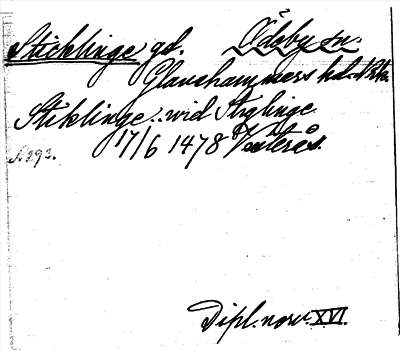 Sticklinge gd. Ödeby sn.
Glanshammars hd.
Stiklinge.. wid Thyslinge
17/6 1478 Västerås.
A293.
Dipl. norv. XVI.